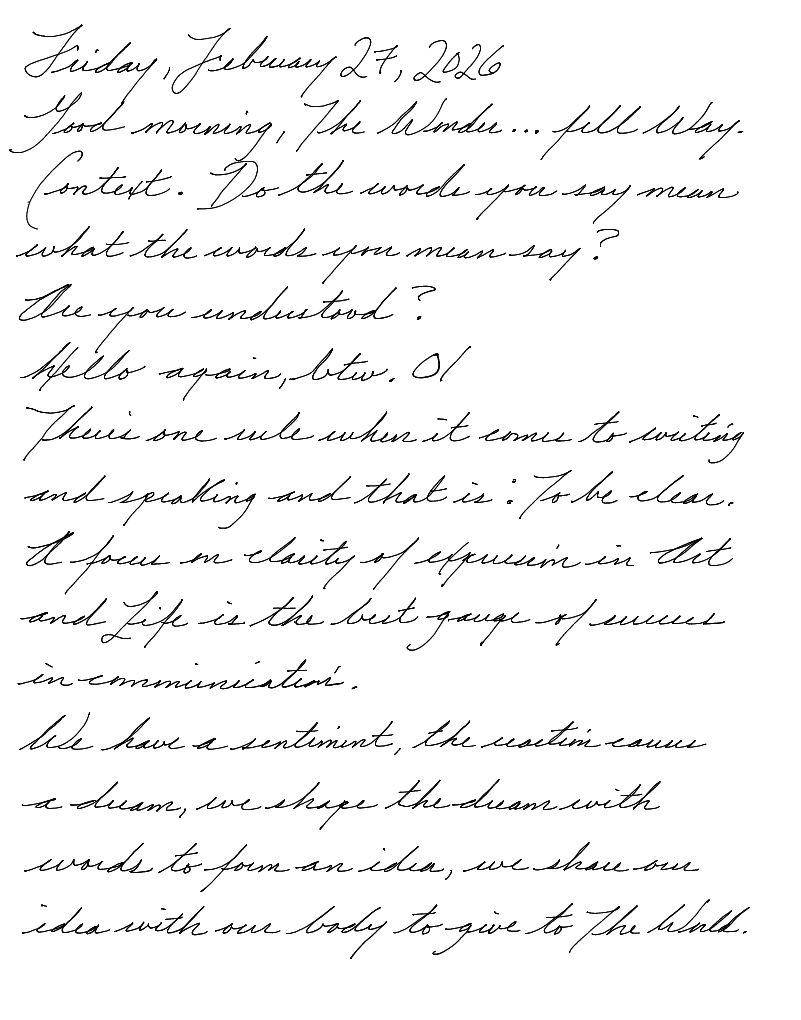 Friday, February 27, 2026
Good morning, The Wonder... full Way.
Context. Do the words you say mean
what the words you mean say?
Are you understood?
Hello again, btw. 01
There's one rule when it comes to writing
and speaking and that is: To be clear.
A focus on clarity of expression in Art
and Life is the best gauge of success
in communication.
We have a sentiment, the reaction causes
a dream, we shape the dream with
words to form an idea, we share our
idea with our body to give to The World.